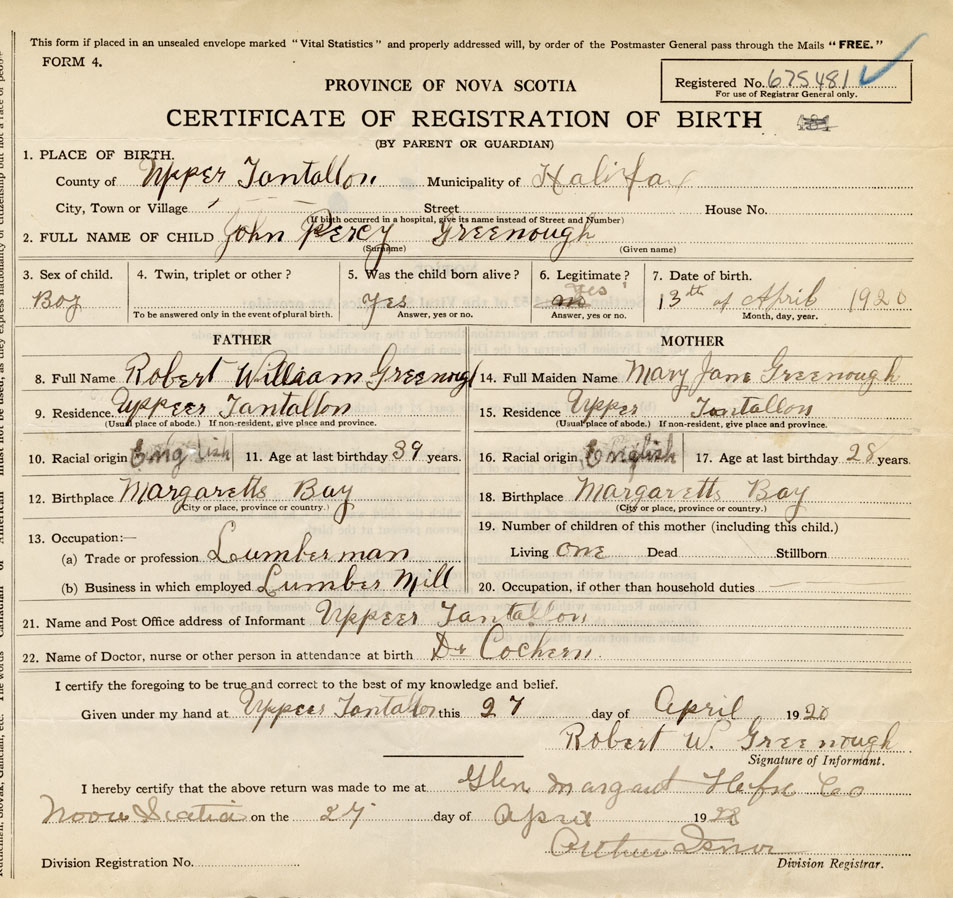 This form if placed in an unsealed envelope marked "Vital Statistics" and properly addressed will, by order of the Postmaster General pass through the Mails "FREE."
FORM 4.
Registered No. 675481
For use of Registrar General only.
PROVINCE OF NOVA SCOTIA
CERTIFICATE OF REGISTRATION OF BIRTH
(BY PARENT OR GUARDIAN)
1. PLACE OF BIRTH.
County of Upper Tantallon Municipality of Halifax
City, Town or Village Street House No.
(If birth occurred in a hospital, give its name instead of Street and Number)
2. FULL NAME OF CHILD John Percy Greenough
(Surname) (Given name)
3. Sex of child. 4. Twin, triplet or other? 5. Was the child born alive? 6. Legitimate? 7. Date of birth.
Boy Yes no Yes 13th of April 1920
To be answered only in the event of plural birth. Answer, yes or no. Answer, yes or no. Month, day, year.
FATHER MOTHER
8. Full Name Robert William Greenough 14. Full Maiden Name Mary Jane Greenough
9. Residence. Uppeer Tantallon 15. Residence Upper Tantallon
(Usual place of abode.) If non-resident, give place and province. (Usual place of abode.) If non-resident, give place and province.
10. Racial origin English 11. Age at last birthday 39 years. 16. Racial origin English 17. Age at last birthday 28 years.
12. Birthplace Margaretts Bay 18. Birthplace Margaretts Bay
(City or place, province or country.) (City or place, province or country.)
13. Occupation:— 19. Number of children of this mother (including this child.)
(a) Trade or profession Lumberman Living one Dead Stillborn
(b) Business in which employed Lumber Mill 20. Occupation, if other than household duties
21. Name and Post Office address of Informant Uppeer Tantallon
22. Name of Doctor, nurse or other person in attendance at birth Dr Cochern.
I certify the foregoing to be true and correct to the best of my knowledge and belief.
Given under my hand at Uppeer Tantallon this 27 day of April 1920
Robert W. Greenough
Signature of Informant.
I hereby certify that the above return was made to me at Glen Margaret Hfx Co
Nova Scotia on the 27 day of April 19
Arthur
Division Registration No. Division Registrar.